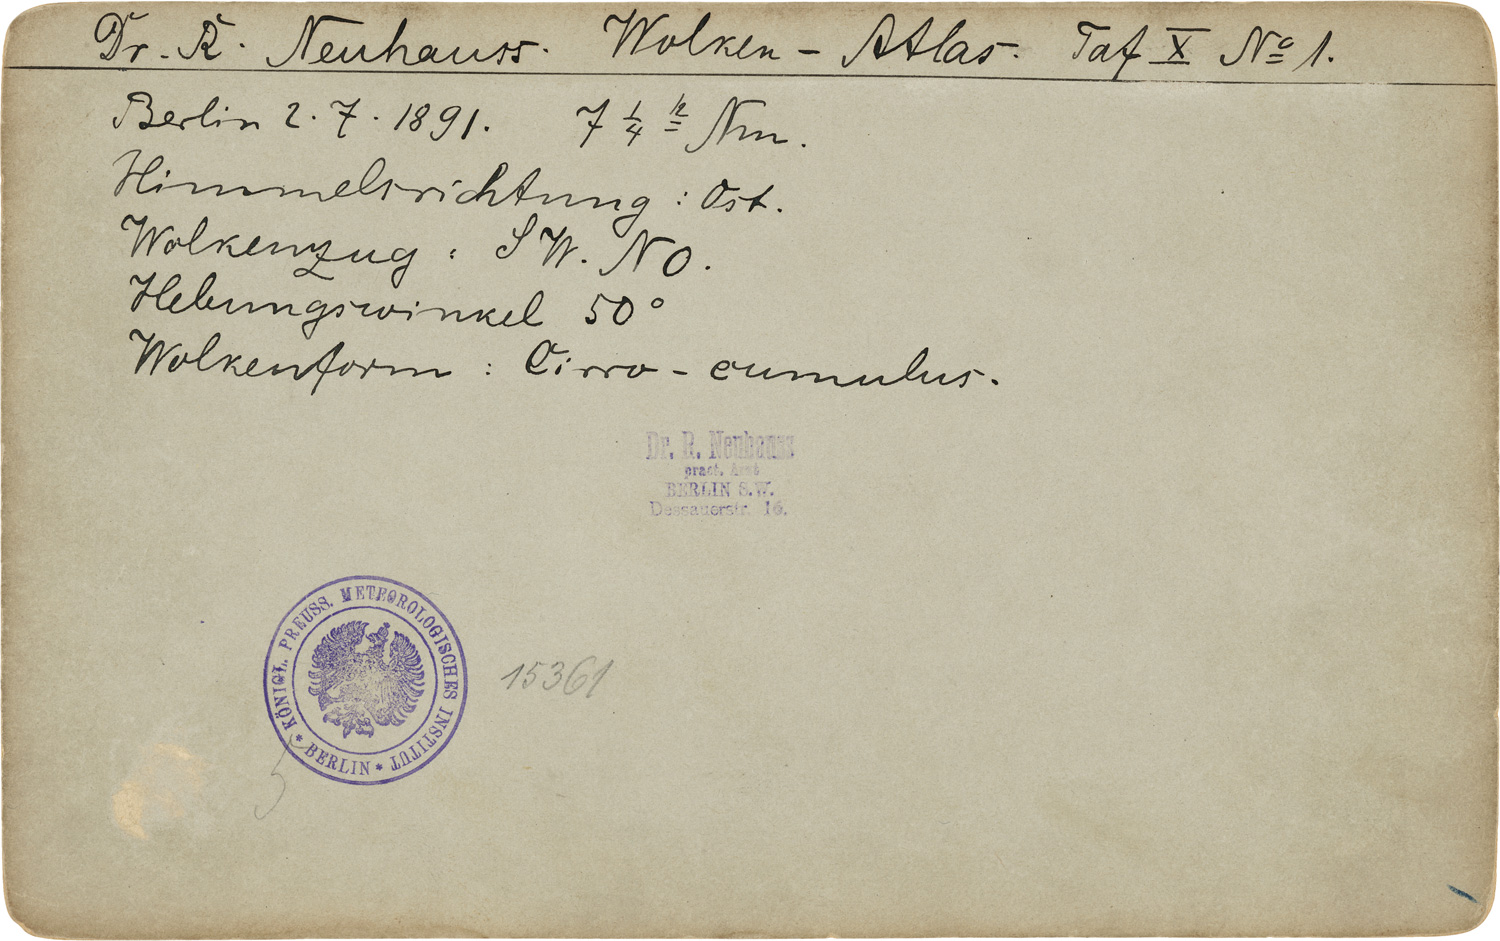 Dr. R. Neuhauss. Wolken - Atlas. Taf X No 1.
Berlin 2. 7. 1891. 7 1/4 h Nm.
Himmelsrichtung : Ost.
Wolkenzug : SW. NO.
Hebungswinkel 50°
Wolkenform : Cirro - cumulus.
Dr. R. Neuhauss
pract. Arzt
BERLIN S.W.
Dessauerstr. 16.
KÖNIGL. PREUSS. METEOROLOGISCHES INSTITUT
* BERLIN *
15361
5